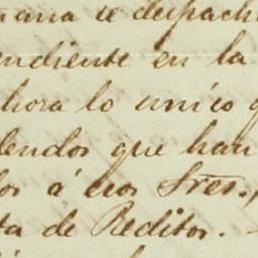 mana se despach
endiente en la
hora lo único q
dendos que han
los á esos Sres.,
ta de Reditos.